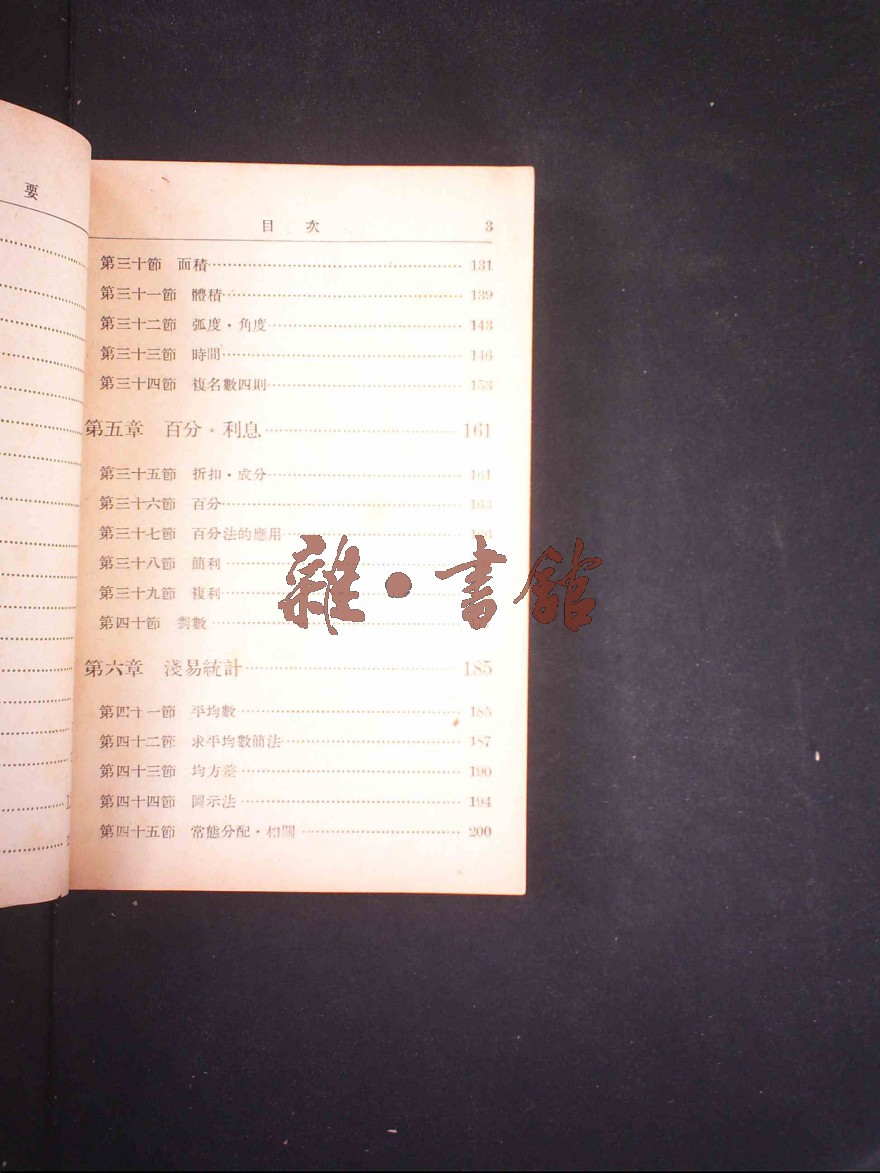 要
目 次 3
第三十節 面積 131
第三十一節 體積 139
第三十二節 弧度・角度 143
第三十三節 時間 146
第三十四節 複名數四則 153
第五章 百分・利息 161
第三十五節 折扣・成分 161
第三十六節 百分 163
第三十七節 百分法的應用
第三十八節 簡利
第三十九節 複利
第四十節 對數
雜・書館
第六章 淺易統計 185
第四十一節 平均數 185
第四十二節 求平均數簡法 187
第四十三節 均方差 190
第四十四節 圖示法 194
第四十五節 常態分配・相關 200